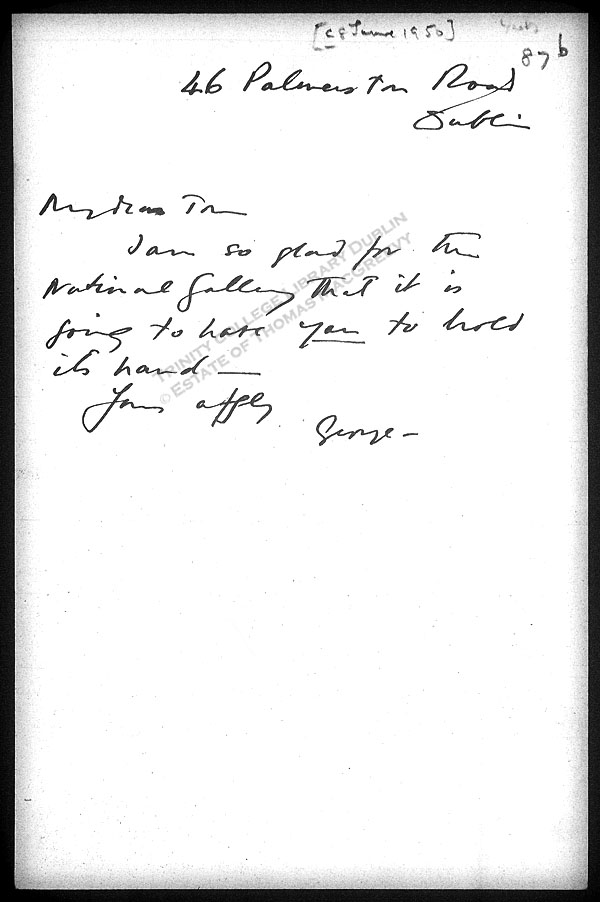 [c 8 June 1950]
Yeats
87b
46 Palmerston Road
Dublin
My dear Tom
I am so glad for the
National Gallery that it is
going to have you to hold
its hand —
Yours affly
George —
TRINITY COLLEGE LIBRARY DUBLIN
© ESTATE OF THOMAS MACGREEVY